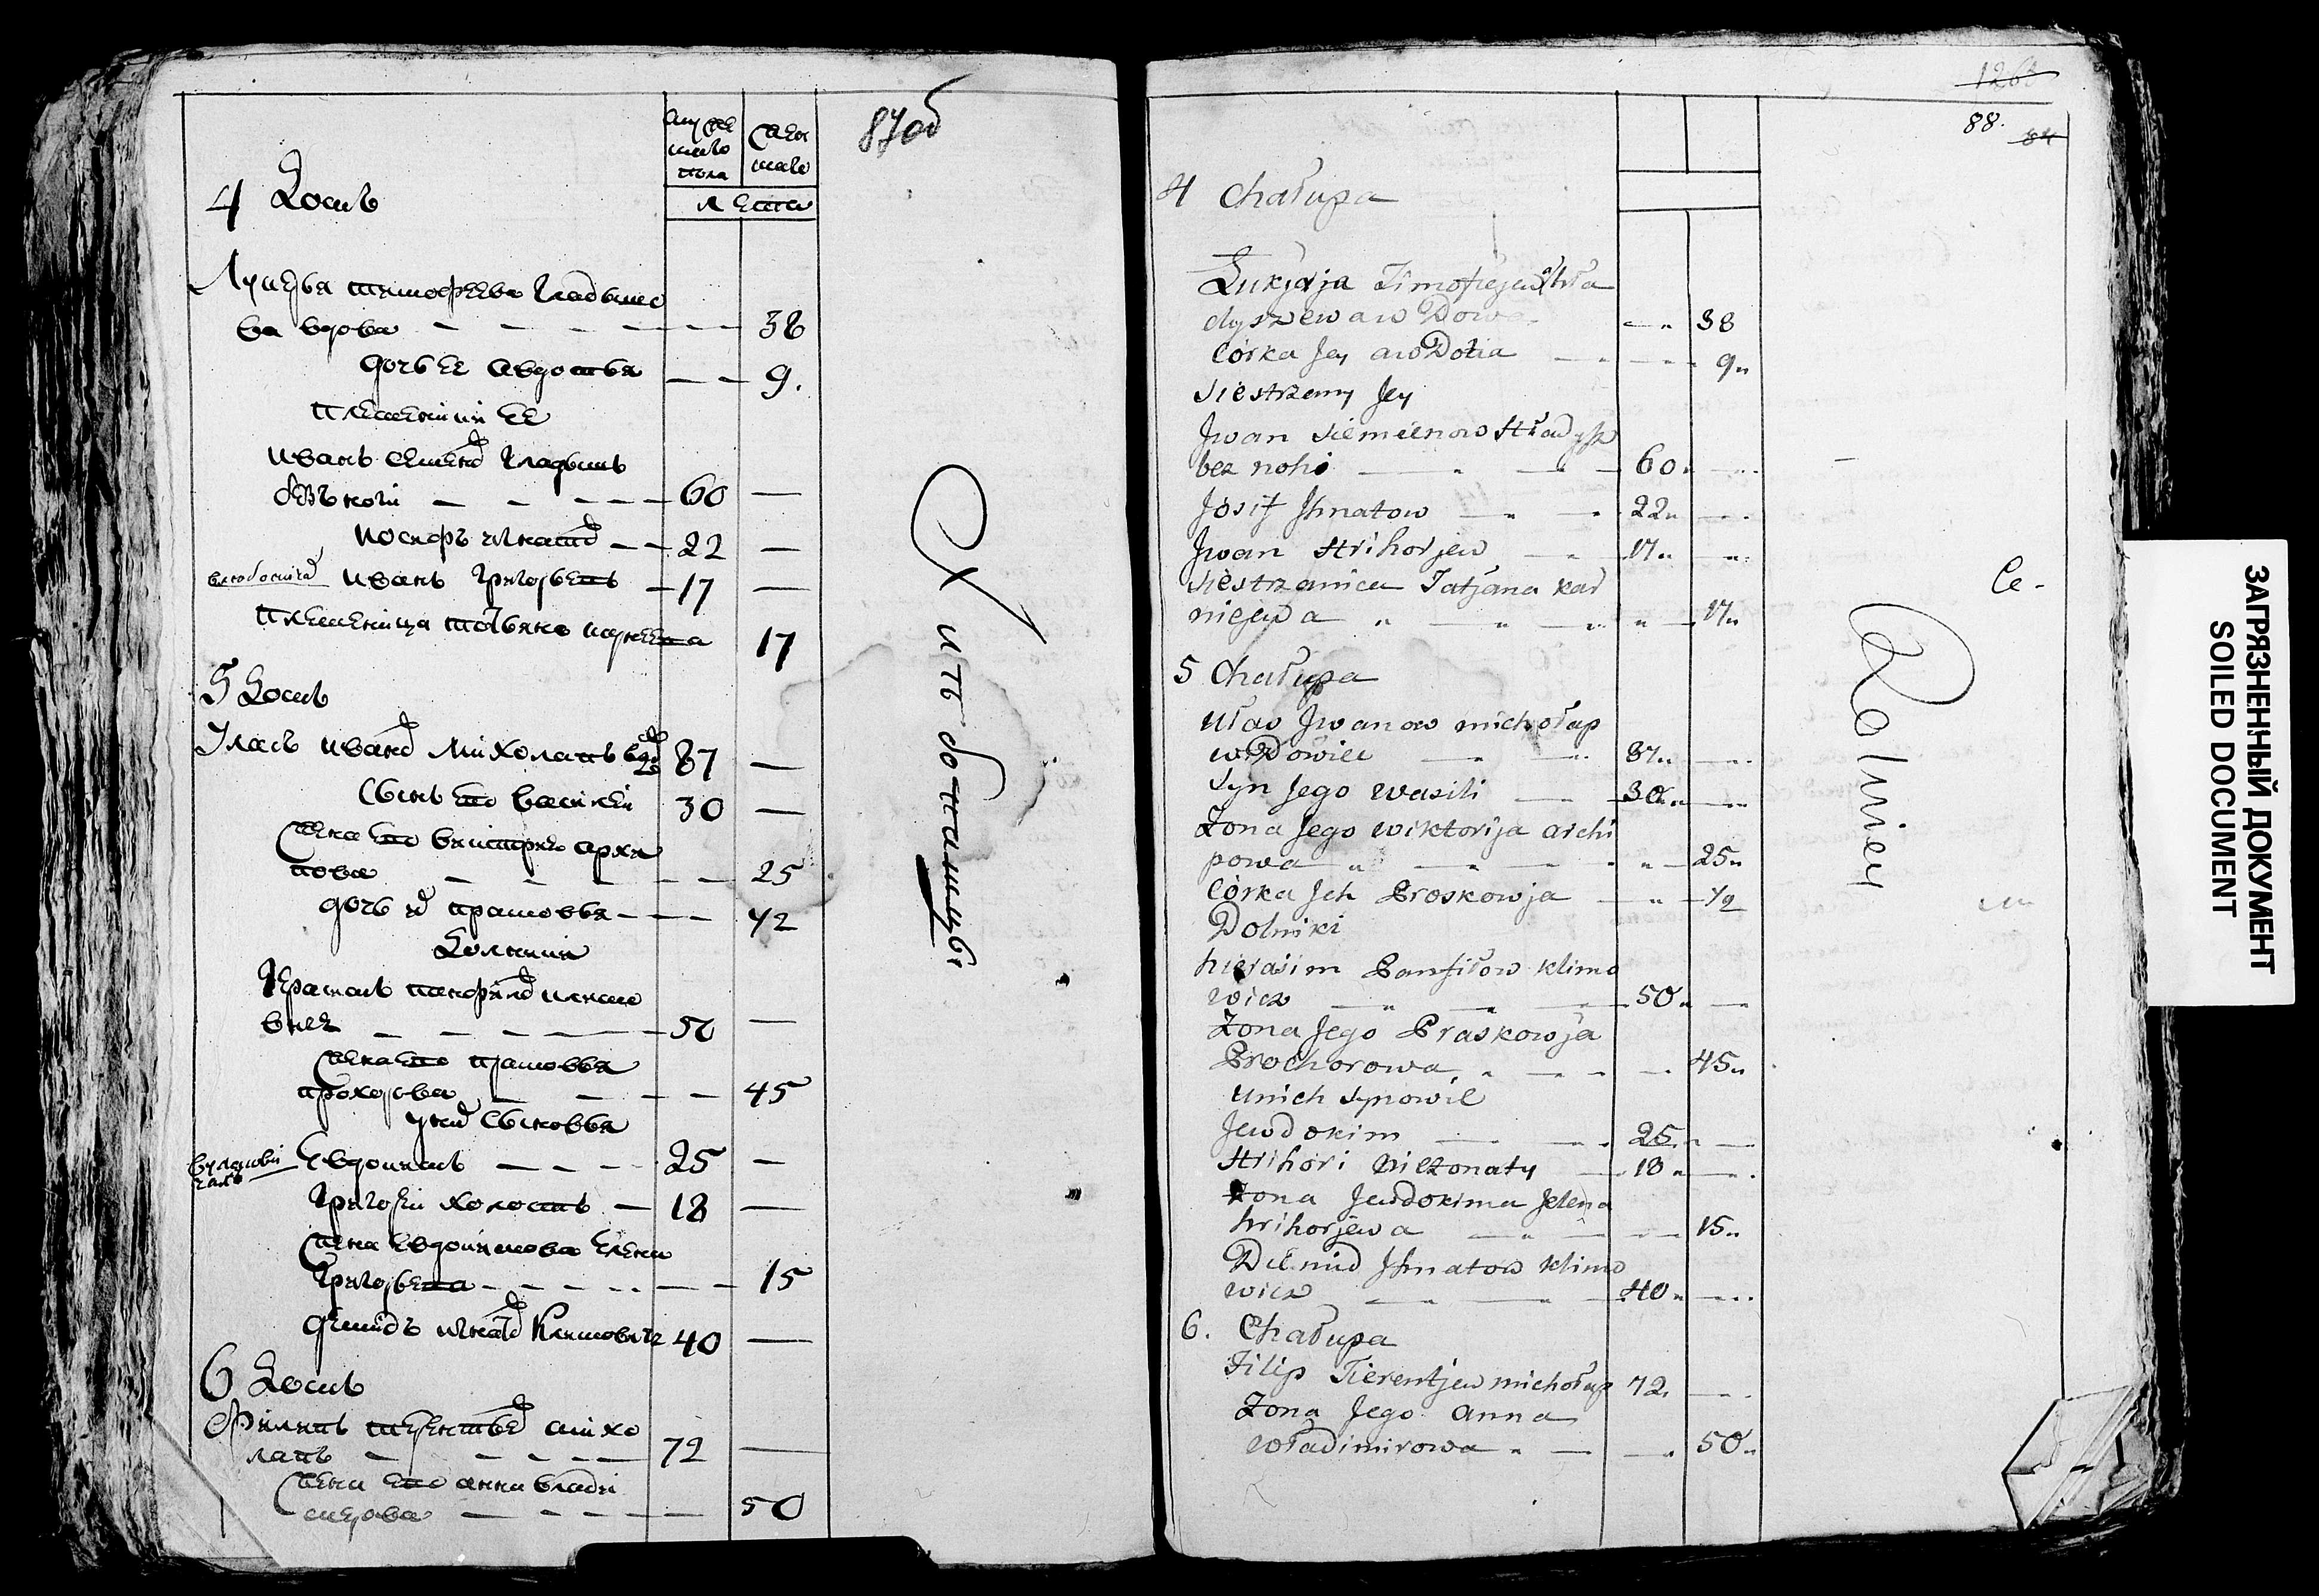 87об
мужe
ска
пола
женс
каго
лета
4 Домъ
Лукерья тимофеева Гладыше
ва вдова 38
дочь ее авдотья 9.
племенники ее
иванъ семенов Гладышъ
безъ ноги 60
иосифъ игнатов 22
иванъ григорьевъ 17
племеница татьяна 17
5 Домъ
Уласъ иванов михолапъ вдов 87
сынъ его василей 30
жена его архи
пова 25
дочь их прасковья 1/2
Герасимъ панфилов климо
вичъ 50
жена его прасковья
прохорова 45
у них сыновья
Евдокимъ 25
Григорей холостъ 18
жена Евдокимова Елена
Григорьева 15
демидъ игнатов Климовичъ 40
6 Домъ
Филипъ терентьев михо
лапъ 72
жена его анна влади
мирова 50
1262
88.
84
4 Chałupa
Łukjerja Timofiejewa Hła
dyszewa wDowa 38
Córka Jey awDotia 9
Siestrzency Jey
Jwan Siemienow Hładysz
bez nohi 60
Josif Jhnatow 22
Jwan Hrihorjew 17
Siestrzanica Tatjana kar
niejewa 17
5 Chałupa
Ułas Jwanow michołap
wDowiec 87
Syn Jego wasili 30
Żona Jego wiktorija archi
powa 25
Córka Jch Proskowja 1/2
Dolniki
hierasim Panfiłow klimo
wicz 50
Żona Jego Praskowja
Prochorowa 45
Unich Synowie
Jewdokim 25
Hrihori Nieżonaty 18
Żona Jewdokima Jelena
hrihorjewa 15
Diemid Jhnatow klimo
wicz 40
6. Chałupa
Filip Tierentjew michołap 72
Żona Jego anna
władimirowa 50
ЗАГРЯЗНЕННЫЙ ДОКУМЕНТ
SOILED DOCUMENT